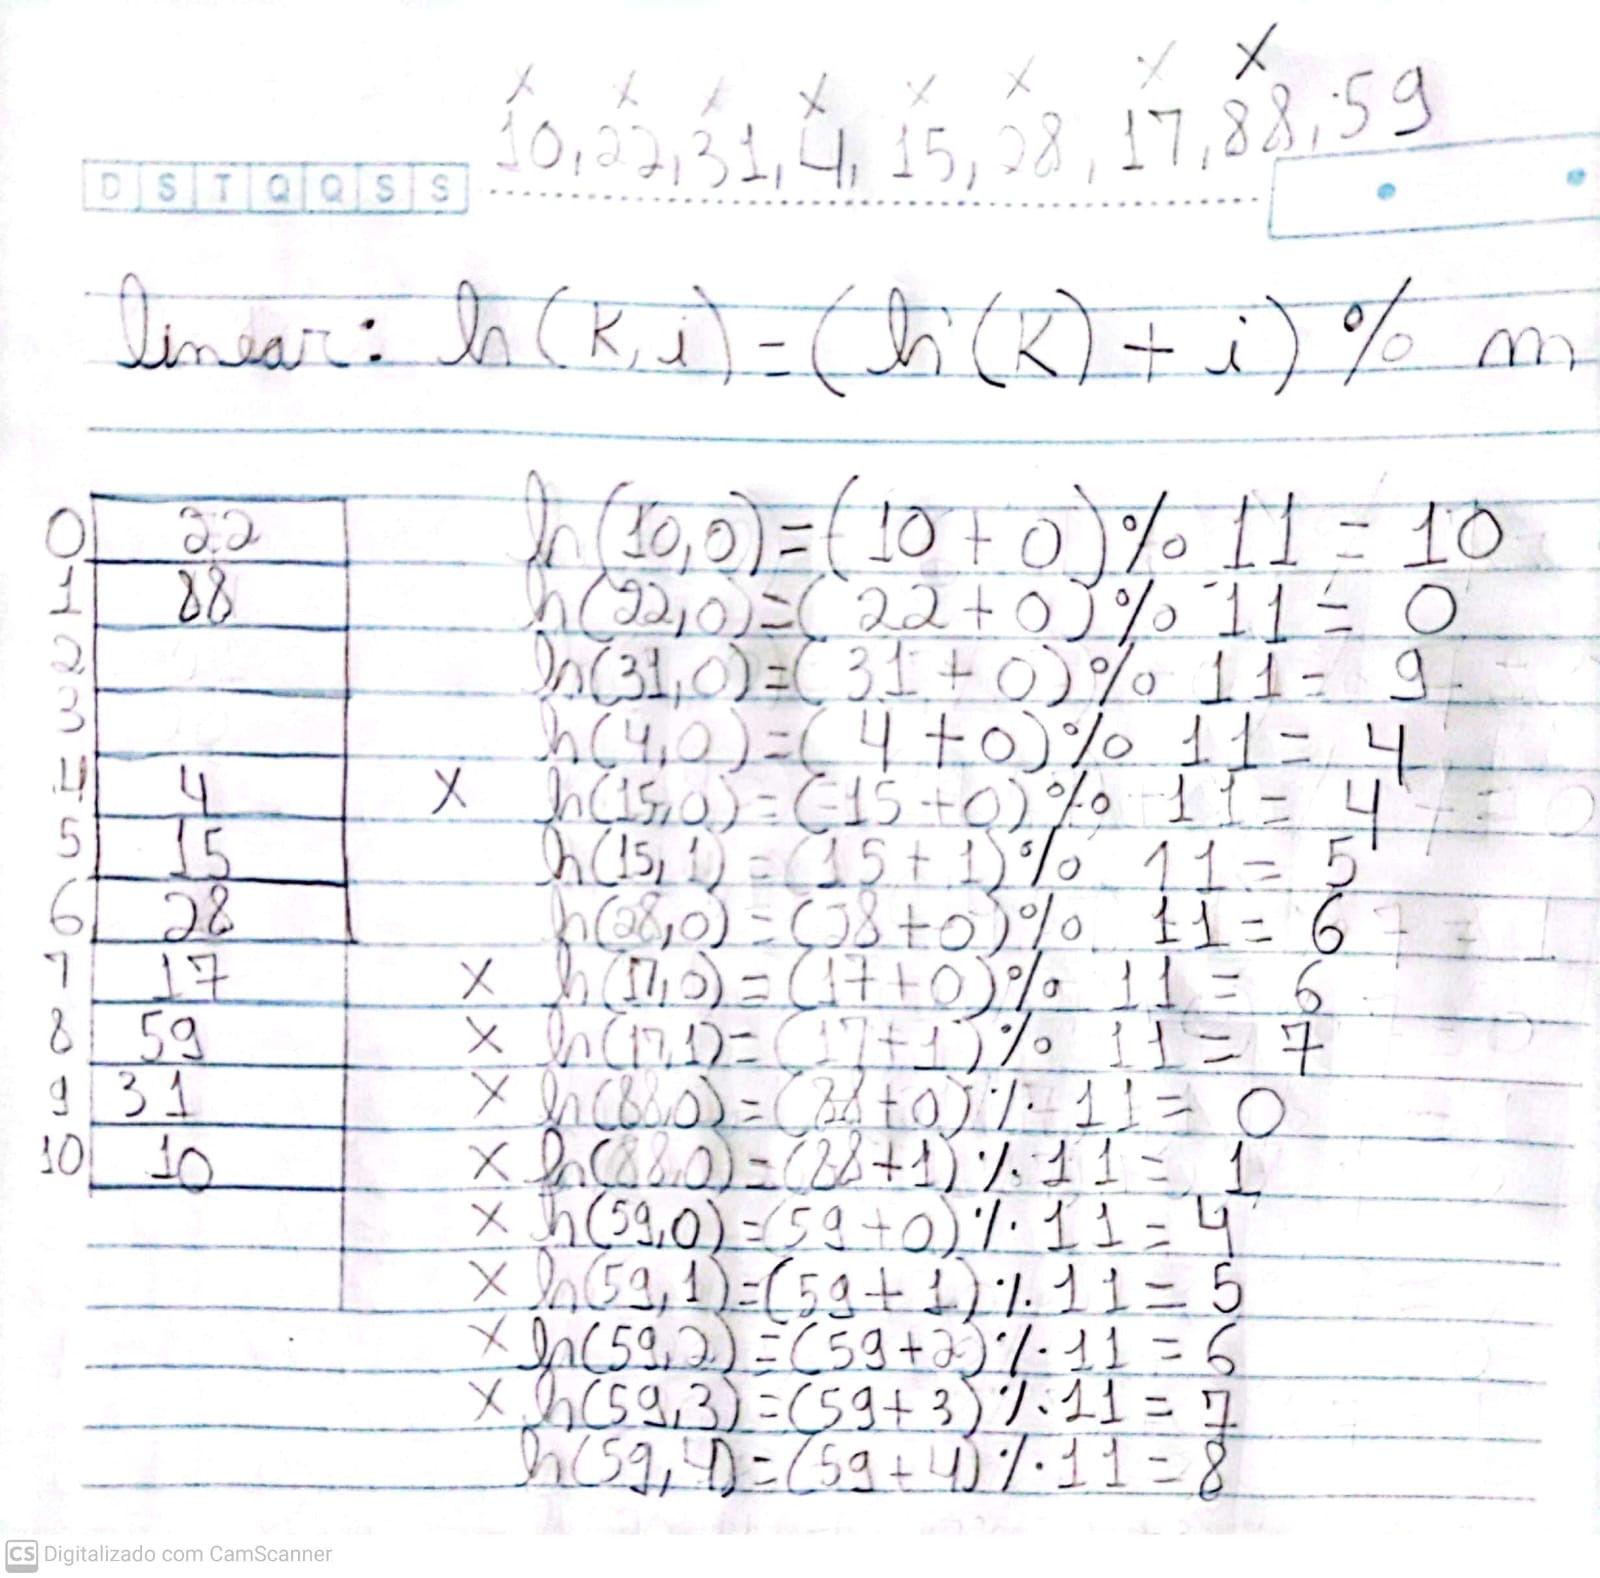 x x x x x x x x
10, 22, 31, 4, 15, 28, 17, 88, 59
D S T Q Q S S
linear: h(k, i) = (h(k) + i) % m
0 22 h(10,0)=(10+0)% 11 = 10
1 88 h(22,0)=(22+0)% 11 = 0
2 h(31,0)=(31+0)% 11 = 9
3 h(4,0)=(4+0)% 11 = 4
4 4 x h(15,0)=(15+0)% 11 = 4
5 15 h(15,1)=(15+1)% 11 = 5
6 28 h(28,0)=(28+0)% 11 = 6
7 17 x h(17,0)=(17+0)% 11 = 6
8 59 x h(17,1)=(17+1)% 11 = 7
9 31 x h(88,0)=(88+0)% 11 = 0
10 10 x h(88,0)=(88+1)% 11 = 1
x h(59,0)=(59+0)% 11 = 4
x h(59,1)=(59+1)% 11 = 5
x h(59,2)=(59+2)% 11 = 6
x h(59,3)=(59+3)% 11 = 7
h(59,4)=(59+4)% 11 = 8
CS Digitalizado com CamScanner